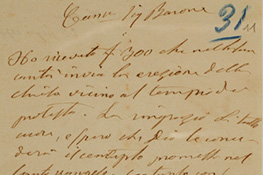 Caro Sig Barone 31
Ho ricevuto f 300 che nella sua
carità invia la erezione della
chiesa vicino al tempio dei
protesta. La ringrazio di tutto
cuore, e spero che Dio le conce
derà il centuplo promesso nel
santo vangelo